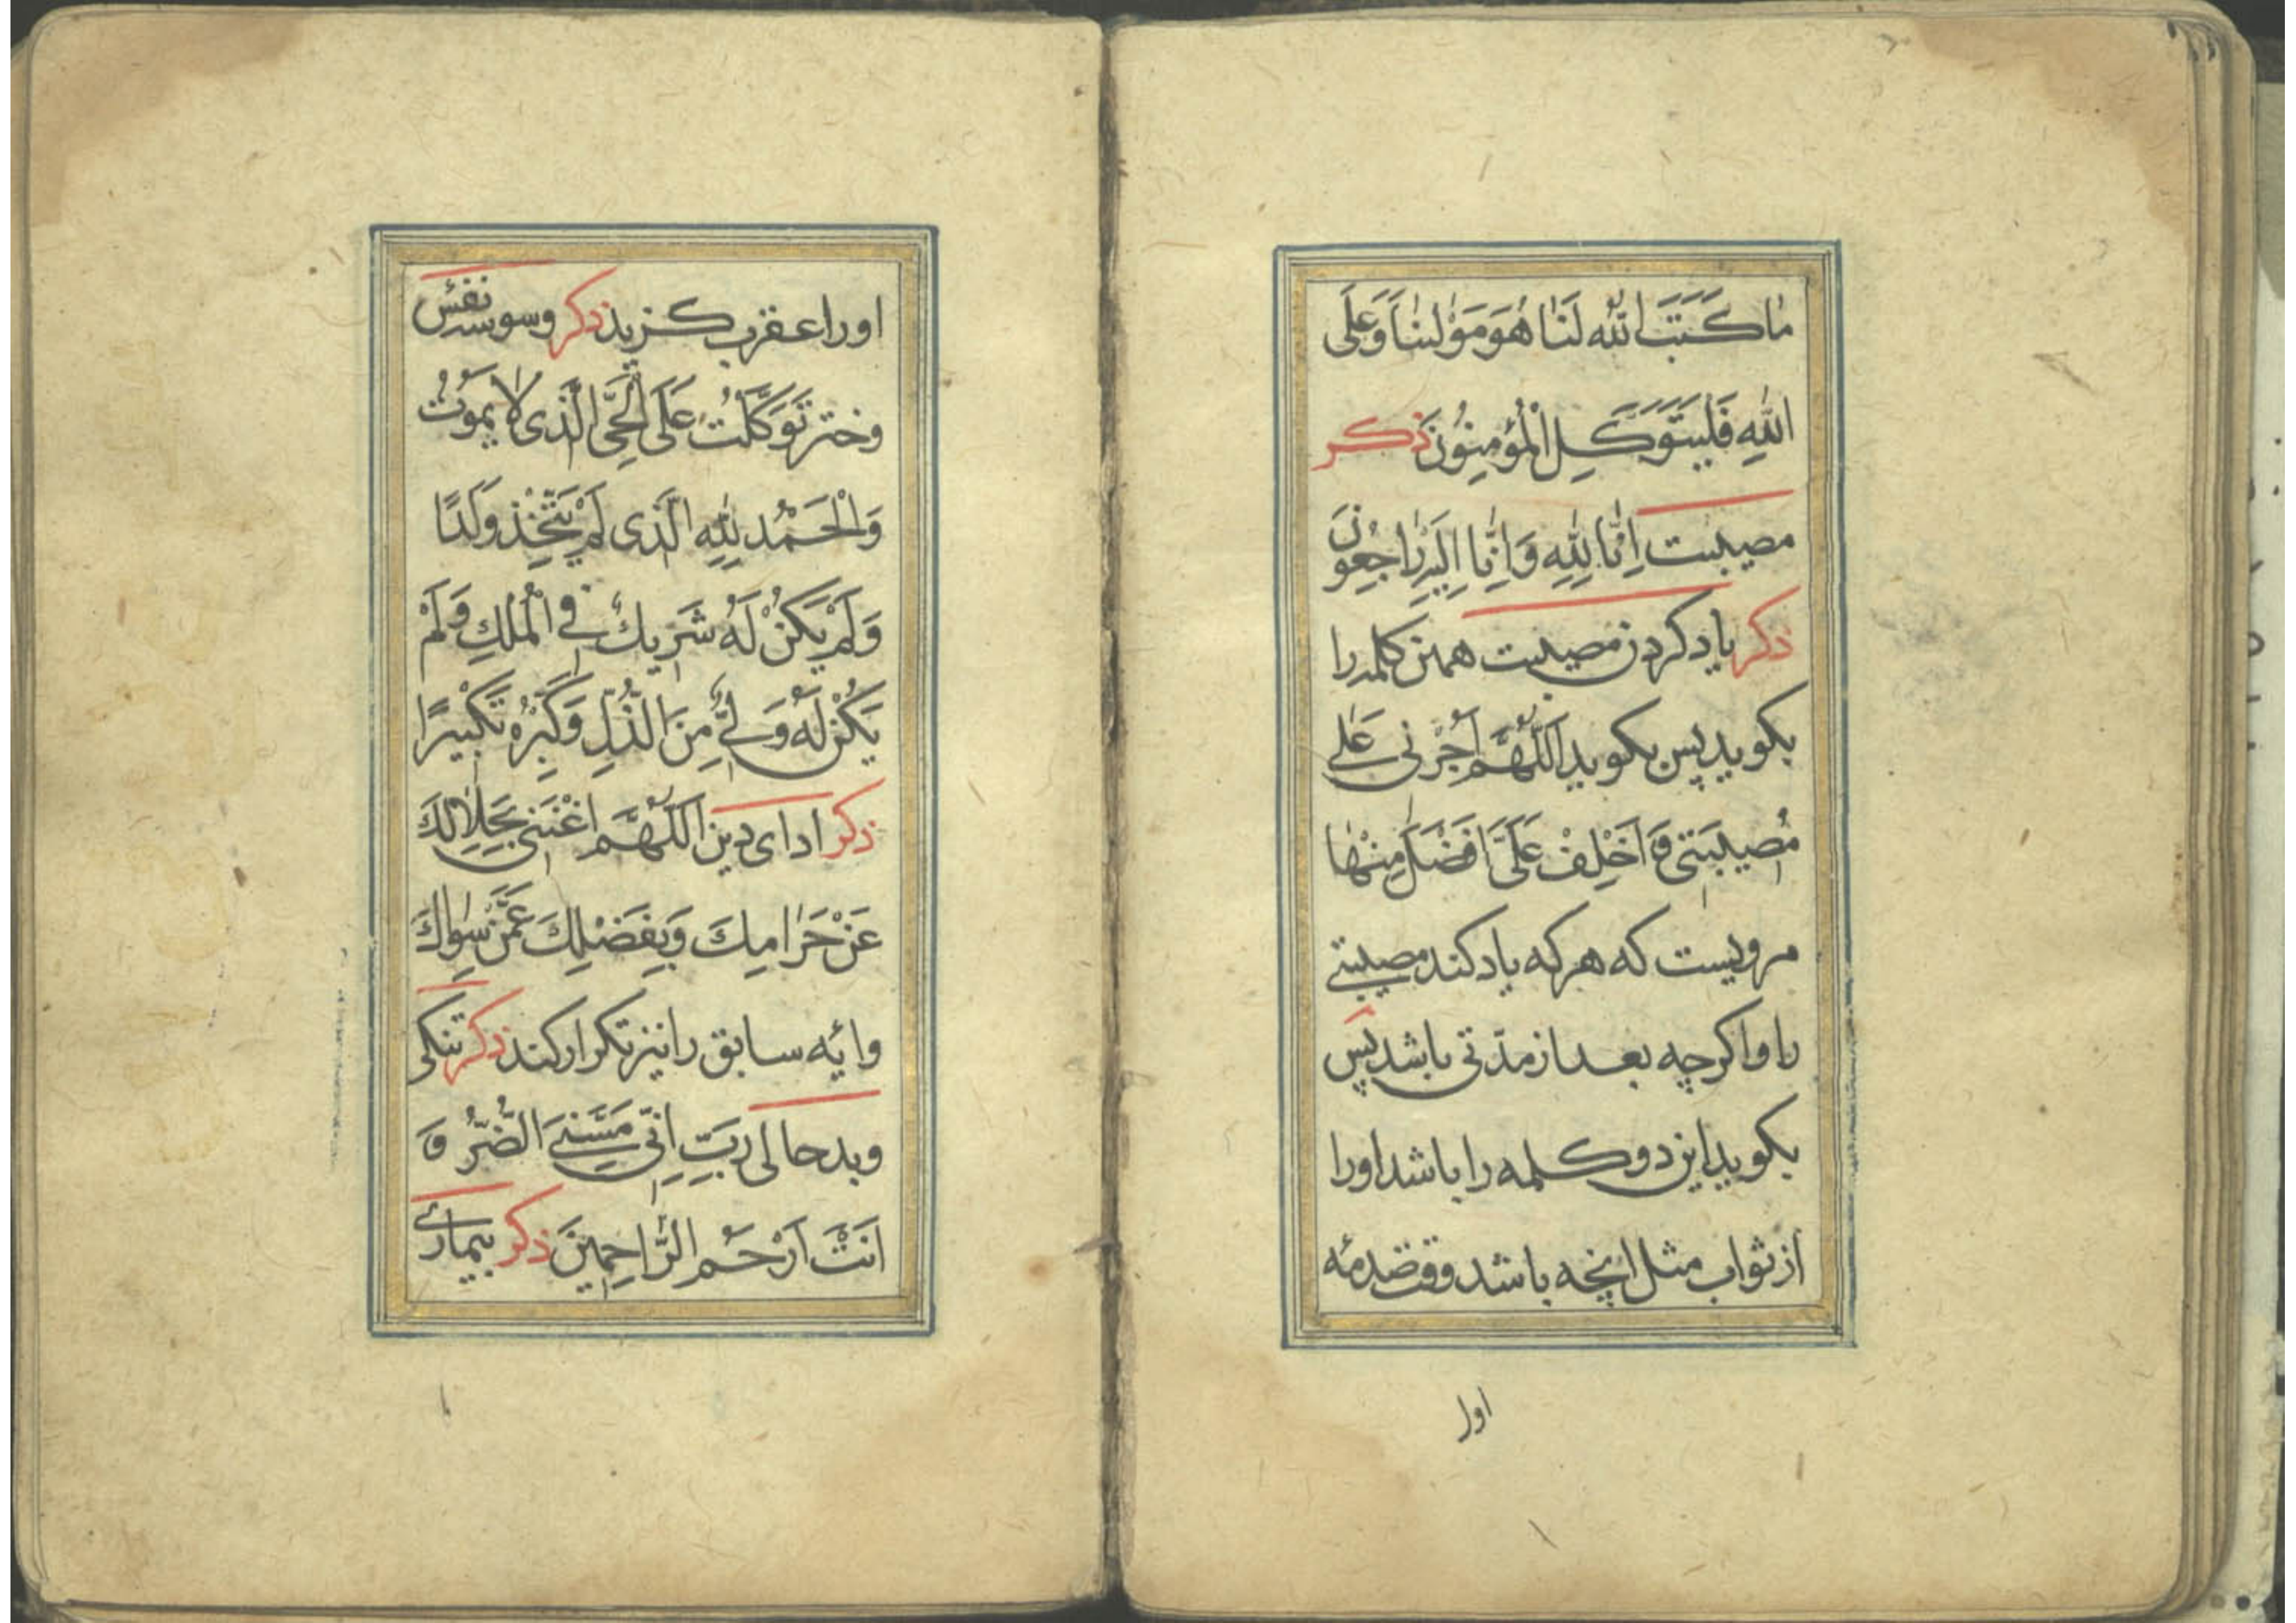 مٰا كَتَبَ اللّٰه لَنٰا هُوَ مَوْلٰینٰا وَعَلَی
اللّٰهِ فَلْیَتَوَكَّلِ الْمُؤْمِنُونَ ذكر
مصیبت اِنّٰا لِلّٰهِ وَاِنّٰا اِلَیْهِ رٰاجِعُونَ
ذكر یاد كردن مصیبت همین كلمه را
بكوید پس بكوید اَللّٰهُمَّ اَجُرْنی عَلٰی
مُصیبَتی وَ اَخْلِفْ عَلَیَّ اَفْضَلَ مِنْهٰا
مرویست كه هر كه یاد كند مصیبتی
را و اكرچه بعد از مدّتی باشد پس
بكوید این دو كلمه را باشد او را
از ثواب مثل انچه باشد وقت صدمه
اول
او را عقرب كزید ذكر وسوسه نفس
تَوَكَّلْتُ عَلَی الْحَیِّ الَّذی لا یَمُوتُ
وَالْحَمْدُ لِلّٰهِ الَّذی لَمْ یَتَّخِذْ وَلَدًا
وَلَمْ یَكُنْ لَهُ شَریكٌ فی الْمُلْكِ وَلَمْ
یَكُنْ لَهُ وَلِیٌّ مِنَ الذُّلِّ وَكَبِّرْهُ تَكْبیرًا
ذكر ادای دین اَللّٰهُمَّ اغْنِنی بِحَلٰالِكَ
عَنْ حَرٰامِكَ وَبِفَضْلِكَ عَمَّنْ سِوٰاكَ
و ائه سابق را نیز تكرار كند ذكر تنكی
و بدحالی رَبِّ اِنّی مَسَّنِیَ الضُّرُّ وَ
اَنْتَ اَرْحَمُ الرّٰاحِمینَ ذكر بیماری